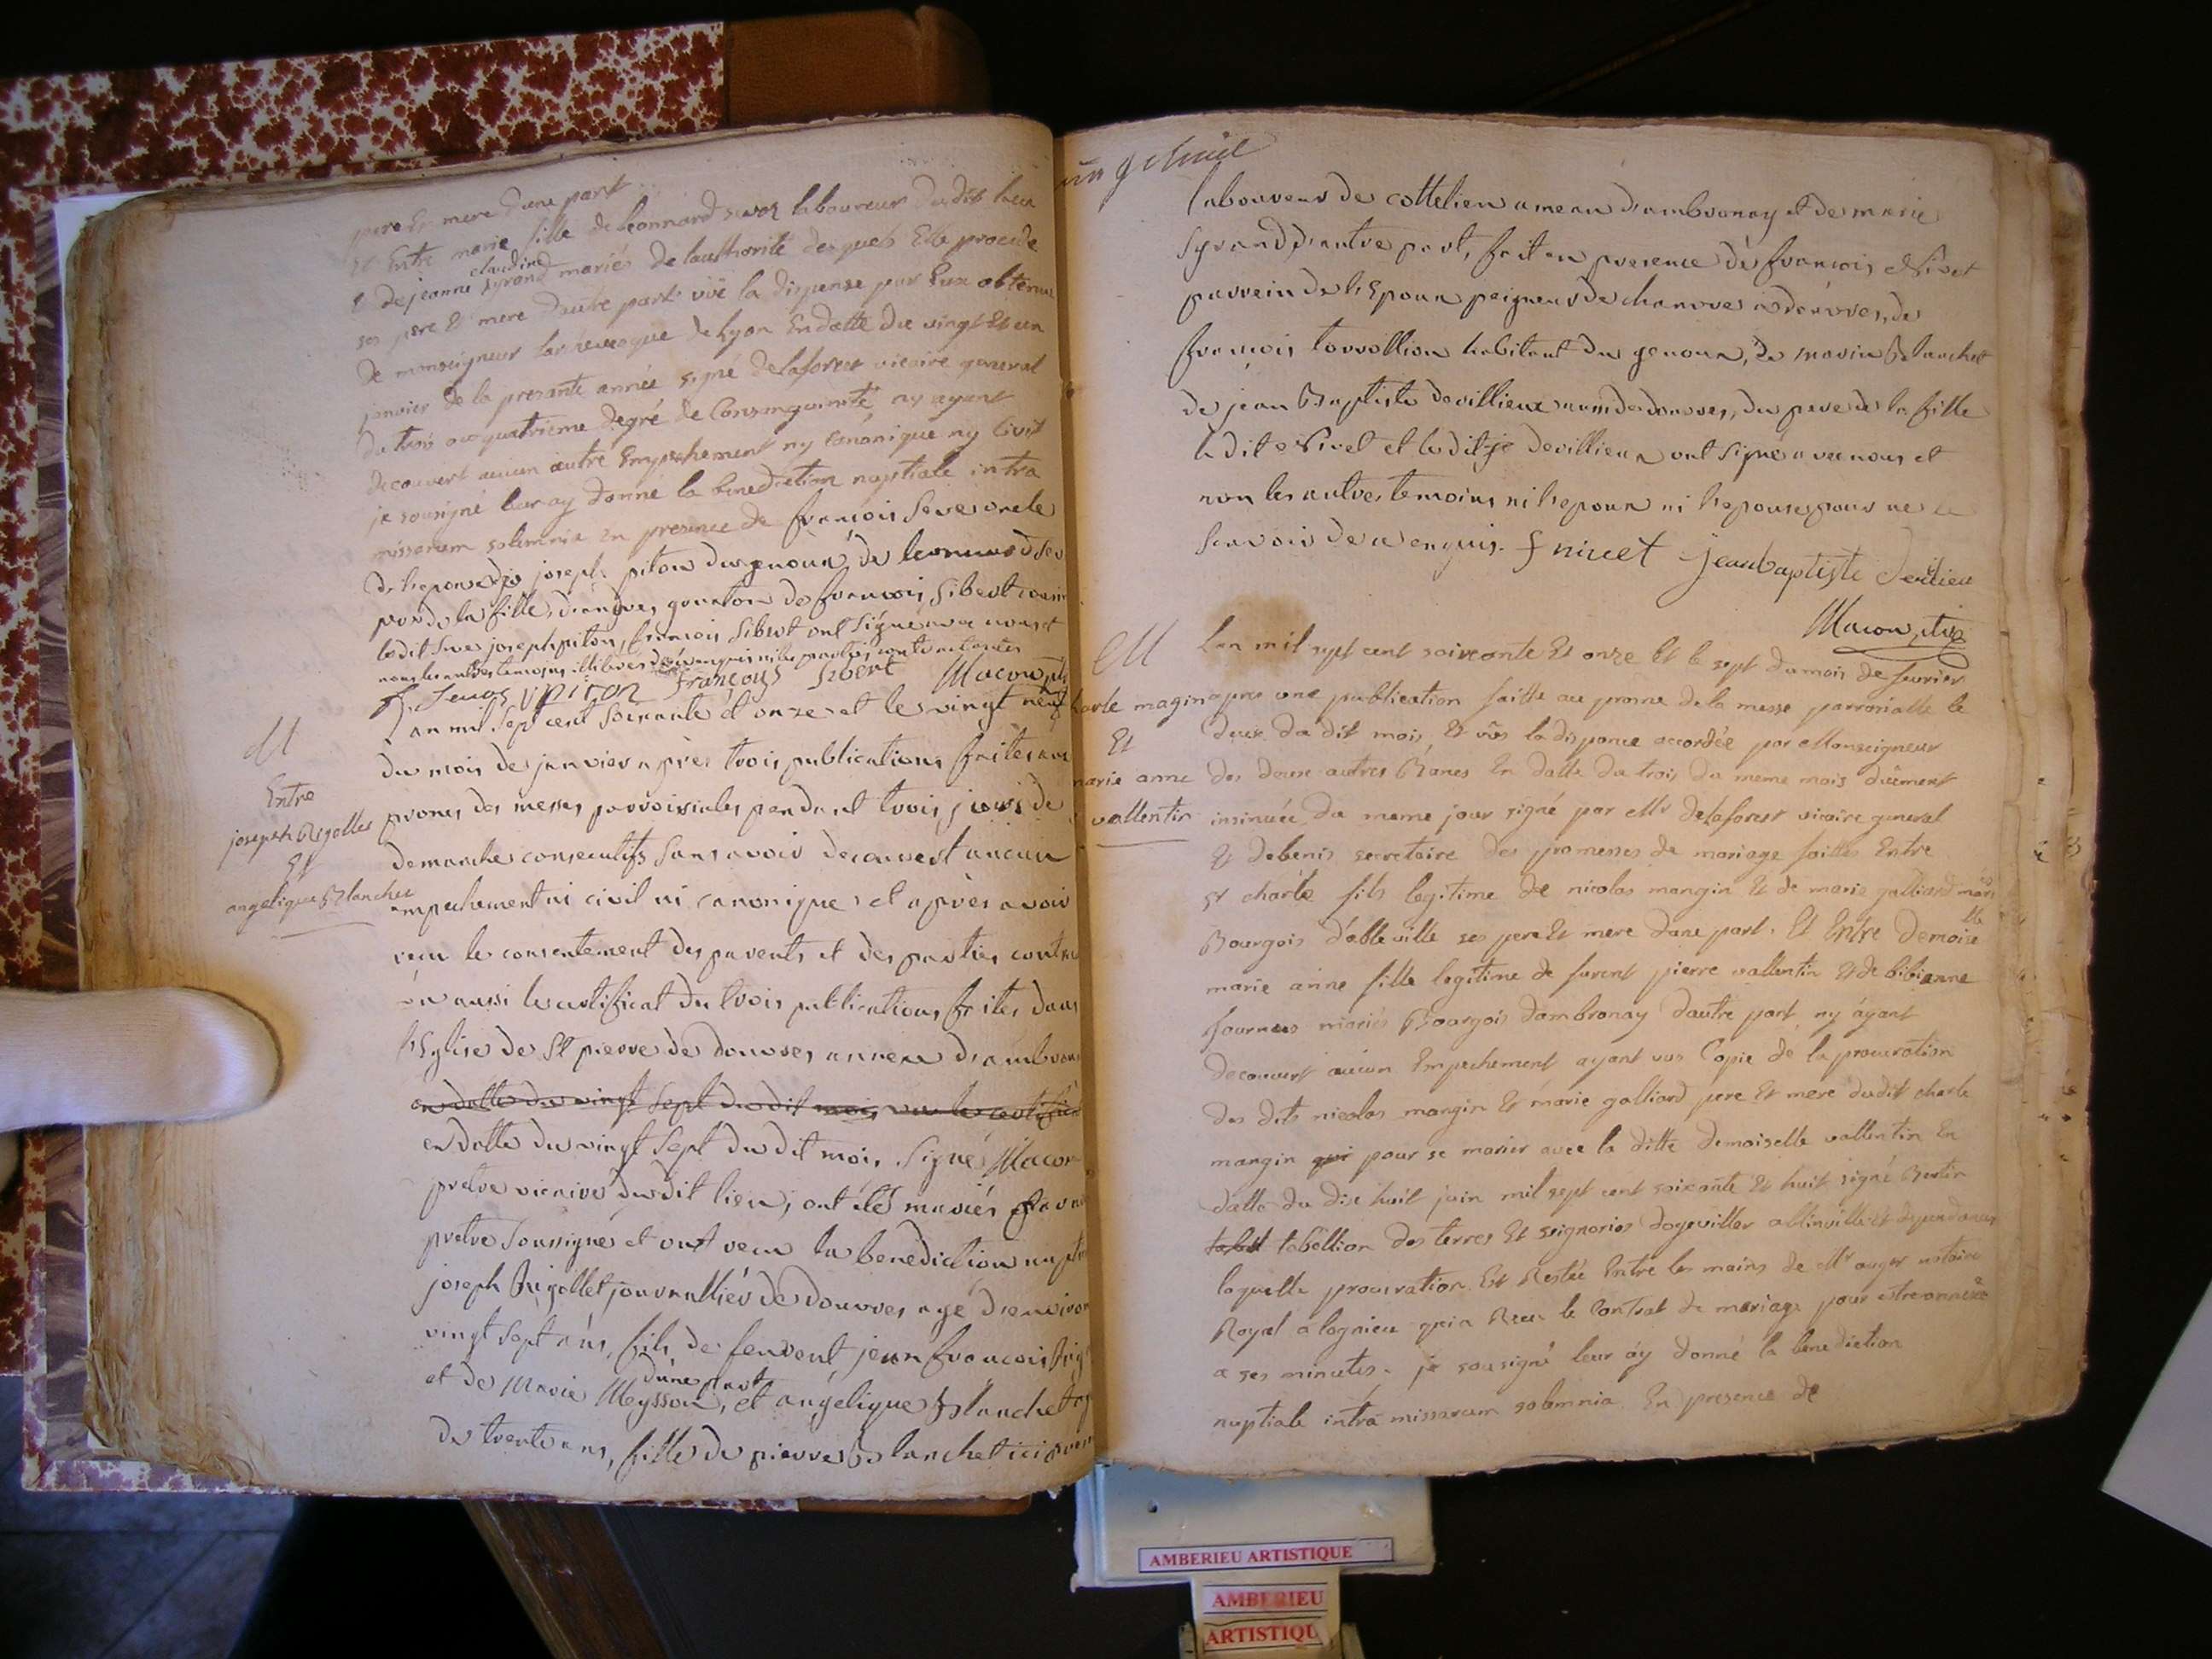 pere Et mere d'une part
Et Entre marie fille de leonnard sevoz laboureur du dit lieu
claudine
& de jeanne syrand mariés de lauthorité desquels Elle procede
ses pere Et mere d'autre part vüe la dispense par Eux obtenue
de monseigneur larcheveque de Lyon En datte du vingt Et un
janvier de la presante année signé delaforest vicaire general
du trois au quatrieme degré de Consanguinité, ny ayant
decouvert aucun autre Empechement ny canonique ny Civil
je sousigné leur ay donné la benediction nuptiale intra
missarum solemnia En presence de francois Seve oncle
de l'epouse de joseph piton du genoud de leonnard Sev
pere de la fille, d'andres gourton de francois Sibert
ledit Seve joseph piton, francois Sibert ont Signé avec nous et
non les autres temoins illiteres
françoys Sibert Macon
Lan mil Sept cent Soixante et onze et le vingt neuf
du mois de janvier après trois publications faites aux
prones des messes parroissiales pendant trois jours de
demanches consecutifs sans avoir decouvert aucun
empechement ni civil ni canonique et après avoir
recu le consentement des parents et des parties contra
vu aussi le certificat de trois publications faites dans
l'Eglise de St pierre de douvres annexe d'ambron
en datte du vingt Sept du dit mois vu le certifica
en datte du vingt Sept du dit mois, Signé Macon
pretre vicaire dudit lieu, ont été mariés par n
pretre Soussigné et ont recu la benediction nupt
joseph Rigollet journallier de Douvres agé d'environ
vingt Sept ans, fils de feu jean francois Rig
d'une part
et de Marie Meysson, et angelique Blanchet ag
de trente ans, fille de pierre Blanchet ici
M
Entre
joseph Rigollet
Et
angelique Blanchet
laboureur de cottelieu ameau d'ambronay et de marie
Syrand d'autre part, fait en presence de francois Nivet
parrein de l'Epoux peigneur de chanvres à douvres, de
francois tovollion habitant du genoux, de marin Blanchet
de jean Baptiste devillieux aussi de douvres, du pere de la fille
le dit Nivet et ledit devillieux ont Signé avec nous et
non les autres temoins ni l'epoux ni l'epouse pour ne le
Scavoir de ce enquis. f nivet jean baptiste
Macon
M
charle magin
Et
marie anne
vallentin
Lan mil sept cent soixante Et onze Et le sept du mois de fevrier
apres une publication faitte au prosne de la messe parroisialle le
deux du dit mois, Et vüs la dispence accordée par Monseigneur
des deux autres Banes En datte du trois du meme mois düement
insinuée du meme jour signé par Mr delaforest vicaire general
Et debenis secretaire des promesses de mariage faittes Entre
sr charle fils legitime de nicolas mangin Et de marie galliard mariés
Bourgois d'ableville ses pere Et mere d'une part. Et Entre Demoiselle
marie anne fille legitime de furent pierre vallentin Et de bibianne
fournus mariés Bourgois dambronay dautre part ny ayant
decouvert aucun Empechement ayant vus Copie de la procuration
des dits nicolas mangin Et marie galliard pere Et mere dudit charle
mangin qui pour se marier avec la ditte demoiselle vallentin En
datte du dix huit juin mil sept cent soixante Et huit signé Bertin
tabell tabellion des terres Et seignories dogeviller ablinville Et dependances
laquelle procuration Est Restée Entre les mains de Mr auger notaire
Royal a lagnieu qui a Receu le Contrat de mariage pour estre annexée
a ses minutes. je sousigné leur ay donné la benediction
nuptiale intra missarum solemnia. En presence de
AMBERIEU ARTISTIQUE
AMBERIEU
ARTISTIQU